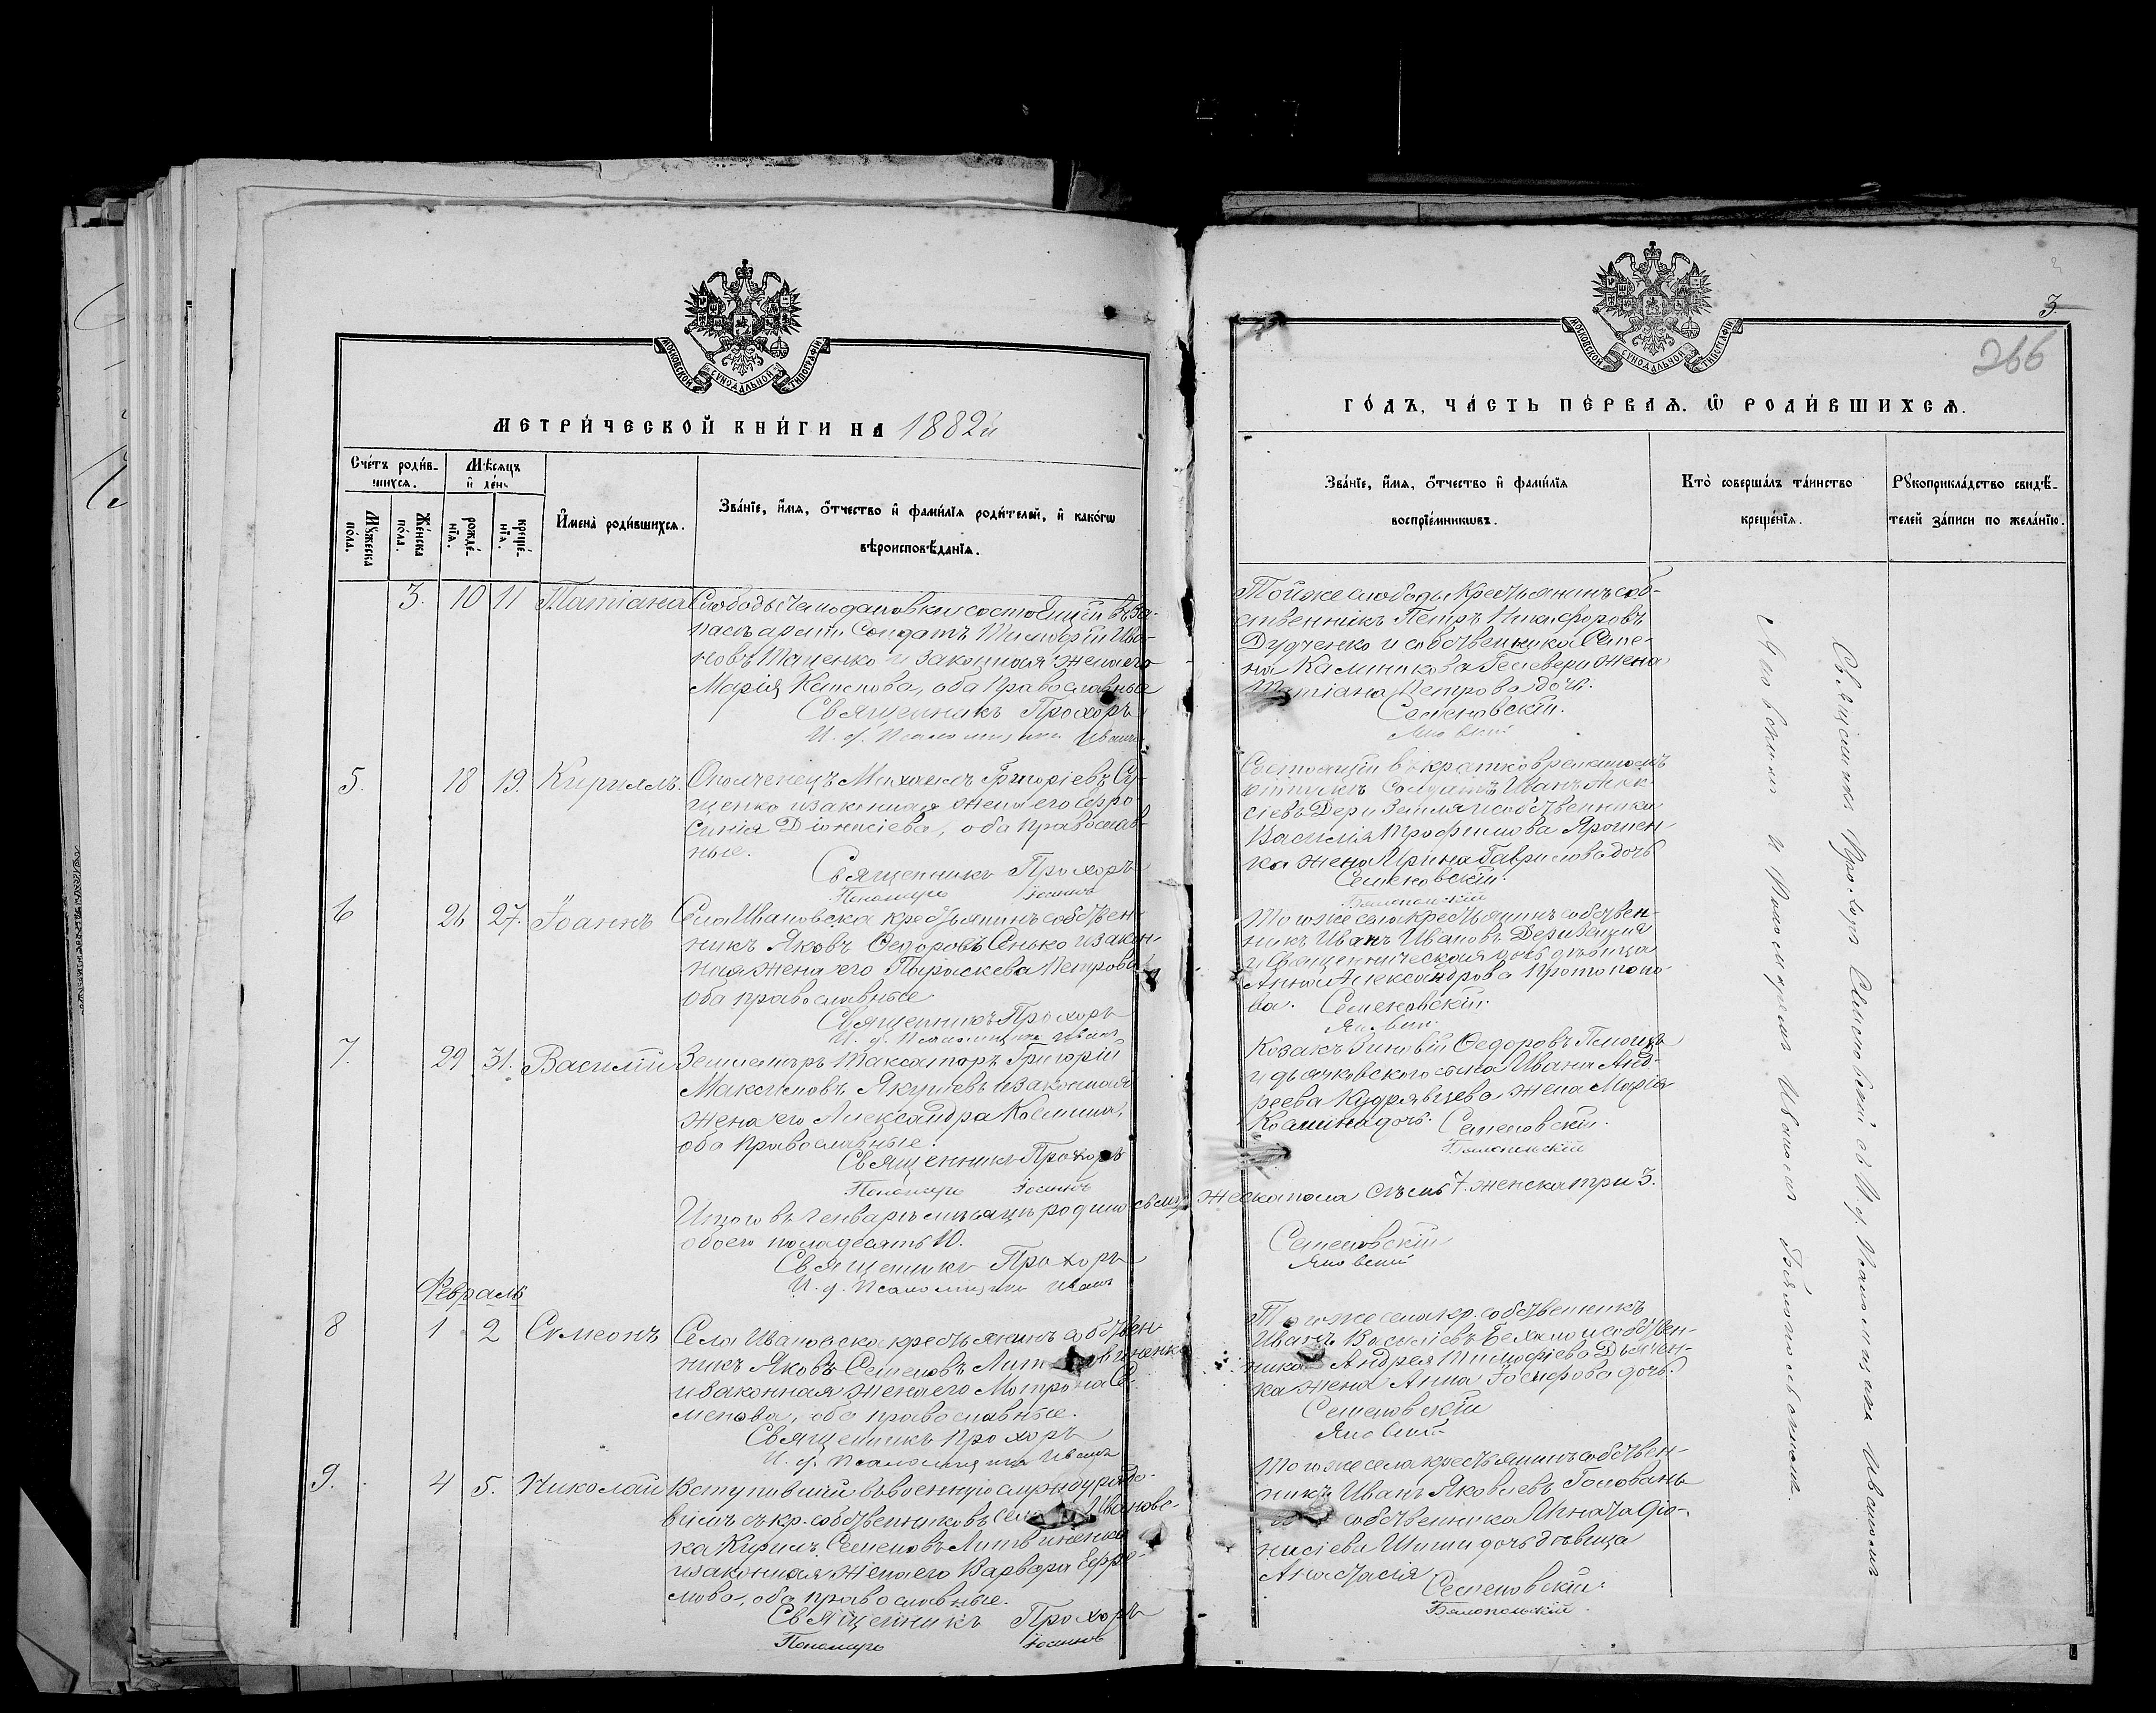 МОСКОВСКОЙ СУНОДАЛЬНОЙ ТИПОГРАФІИ
МЕТРИ́ЧЕСКОЙ КНИ́ГИ НА 1882й
Сче́тъ роди́в-
шихся.
Мѣ́сяцъ
и҆ де́нь
Мꙋ́жеска
по́ла.
Же́нска
по́ла.
рожде́-
нїѧ.
креще́-
нїѧ.
И҆мена̀ роди́вшихсѧ.
Зва́нїе, и҆́мѧ, ѻ҆́тчество и҆ фами́лїѧ роди́телей, и҆ како́гѡ
вѣроисповѣ́данїѧ.
3. 10 11 Татіана Слободы Чаподаповки состоящій въ за-
пасѣ арміи Солдатъ Тимофей Ива-
новъ Таценко и законная жена его
Марія Карпова, оба православные
Священникъ Прохоръ
И. д. Псаломщика Иванъ
5. 18 19. Кириллъ. Ополченецъ Михаилъ Григоріевъ Су-
щенко и законная жена его Ефро-
синія Діонисіева, оба православ-
ные.
Священникъ Прохоръ
Пономарь Іоаннъ
6 26 27. Іоаннъ Села Ивановска крестьянинъ собствен-
никъ Яковъ Ѳедоровъ Сенько и закон-
ная жена его Параскева Петрова
оба православные
Священникъ Прохоръ
И. д. Псаломщика Иванъ
7. 29 31. Василій Землемѣръ Таксаторъ Григорій
Максимовъ Якушевъ и законная
жена его Александра Космина,
оба православные.
Священникъ Прохоръ
Пономарь Іоаннъ
Итого въ Генварѣ мѣсяцѣ родилось му-
обоего пола десять 10.
Священникъ Прохоръ
И. д. Псаломщика Иванъ
Февраль
8 1 2 Сѵмеонъ Села Ивановска крестьянинъ собствен-
никъ Яковъ Семеновъ Литвиненко
и законная жена его Мотрона Се-
менова, оба православные.
Священникъ Прохоръ
И. д. Псаломщика Иванъ
9. 4 5. Николай Вступившій въ военную службу рядо-
вымъ съ кр. собственниковъ Села Ивановс-
ка Кирилъ Семеновъ Литвиненко
и законная жена его Варвара Ефре-
мова, оба православные.
Священникъ Прохоръ
Пономарь Іоаннъ
3.
266
МОСКОВСКОЙ СУНОДАЛЬНОЙ ТИПОГРАФІИ
ГО́ДЪ, ЧА́СТЬ ПЕ́РВАѦ. Ѡ҆ РОДИ́ВШИХСѦ.
Зва́нїе, и҆́мѧ, ѻ҆́тчество и҆ фами́лїѧ
воспрїе́мникѡвъ.
Кто̀ соверша́лъ та́инство
креще́нїѧ.
Рꙋкоприкла́дство свидѣ́-
телей за́писи по жела́нїю.
Той же слободы Крестьянинъ соб-
ственникъ Петръ Никифоровъ
Дудченко и собственника Семе-
на Калиникова жена
Татіана Петрова дочь.
Семеновскій.
Яновскій
Состоящій въ кратковременномъ
отпускѣ Солдатъ Иванъ Алек-
сіевъ Дериземля и собственника
Василія Трофимова Ярошен-
ка жена Ирина Гаврилова дочь
Семеновскій.
Бялопольскій
Того же села крестьянинъ собствен-
никъ Иванъ Ивановъ Дериземля
и Священническая дочь дѣвица
Анна Александрова Протопопо-
ва. Семеновскій.
Яновскій
Козакъ Зиновій Ѳедоровъ
и дьячковского сына Ивана Анд-
реева Кудрявцева жена Марія
Космина дочь. Семеновскій.
Бялопольскій
жеска пола седмь 7. женска три 3.
Семеновскій
Яновскій
Того же села кр. собственникъ
Иванъ Василіевъ и собствен-
ника Андрея Тимофіева Дьячен-
ка жена Анна Іосифова дочь.
Семеновскій
Яновскій
Того же села крестьянинъ собствен-
никъ Иванъ Яковлевъ Головань
собственника Игната Діо-
нисіева дочь дѣвица
Анастасія
Семеновскій.
Бялопольскій.
Священникъ Прохоръ Семеновскій съ И. д. Псаломщика Иваномъ
Яновскимъ и Пономаремъ Іоанномъ Бялопольскимъ.